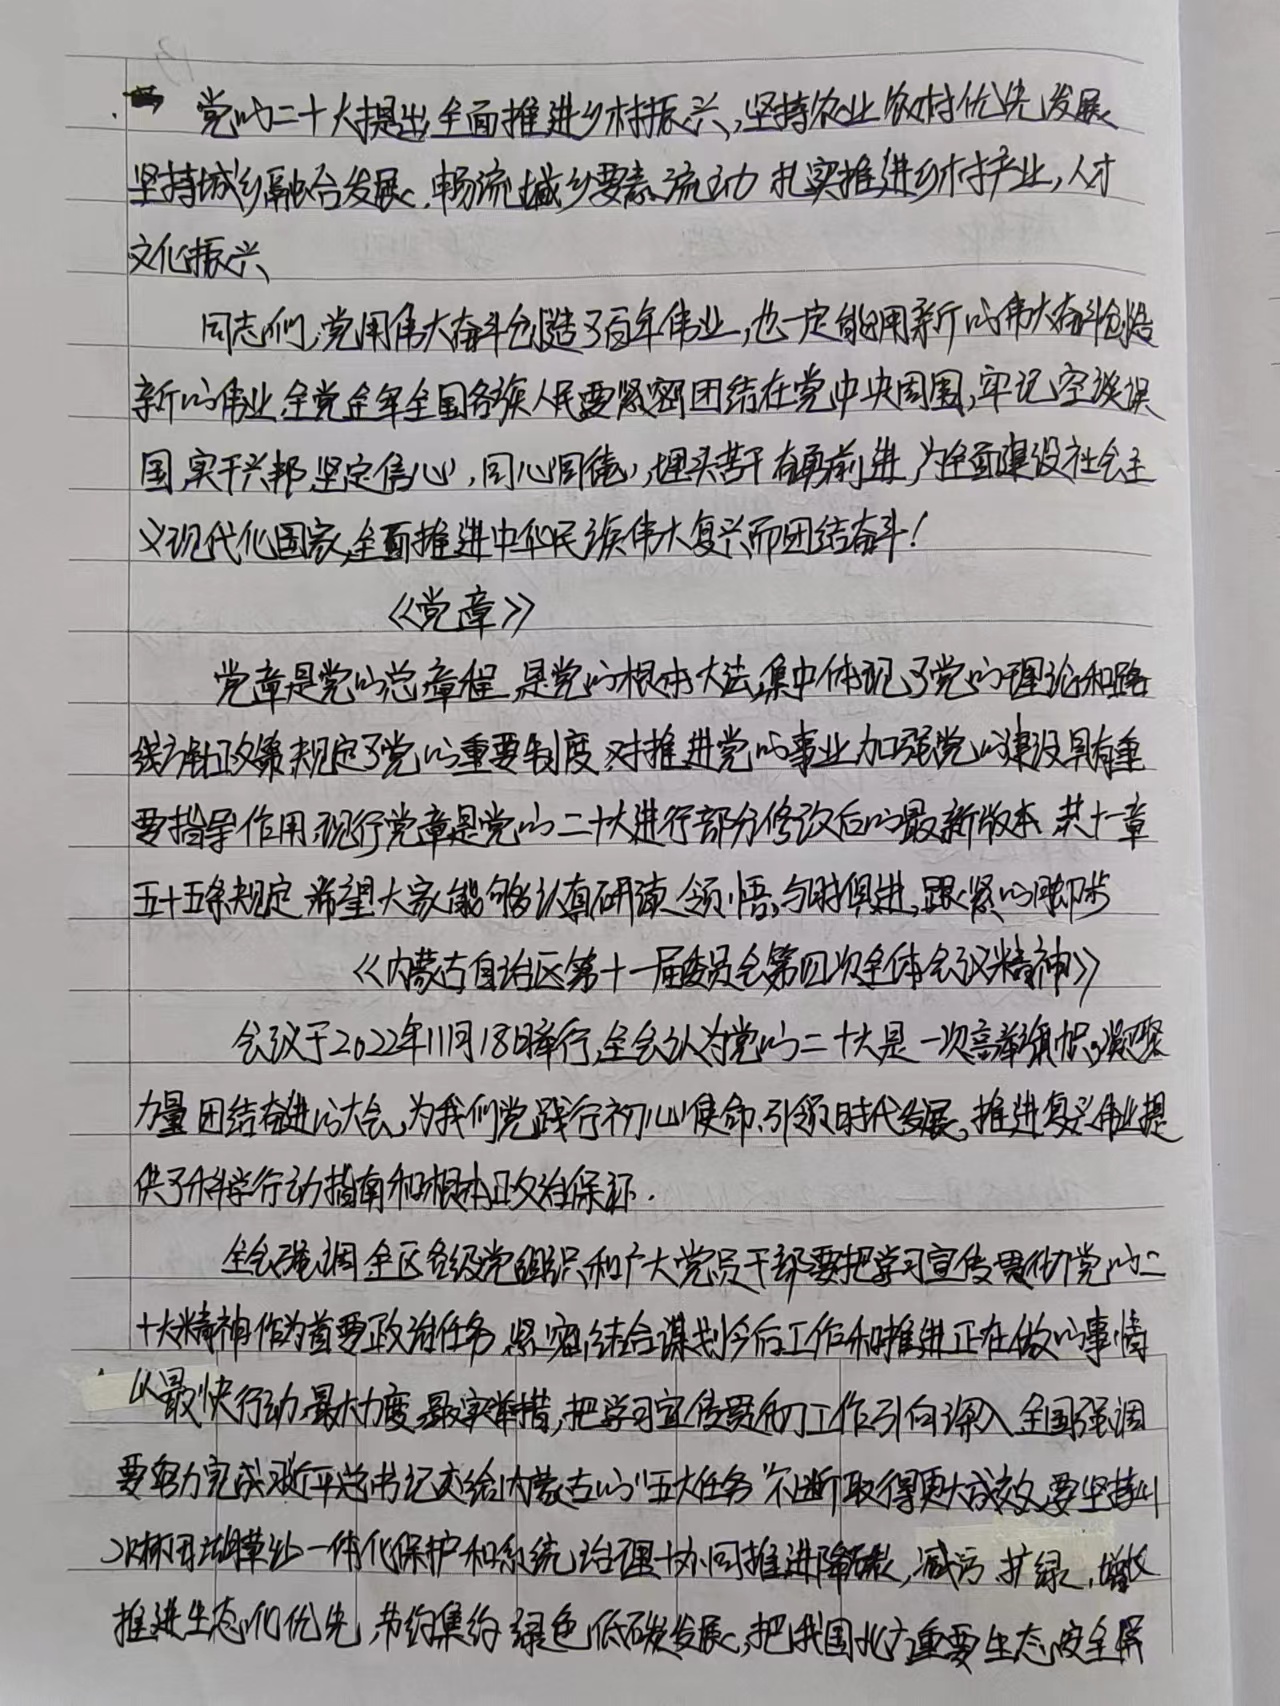 党的二十大提出,全面推进乡村振兴,坚持农业农村优先发展
坚持城乡融合发展,畅流城乡要素流动 扎实推进乡村产业,人才
文化振兴、
同志们,党用伟大奋斗创造了百年伟业,也一定能用新的伟大奋斗创造
新的伟业,全党全军全国各族人民要紧密团结在党中央周围,牢记空谈误
国,实干兴邦,坚定信心,同心同德,埋头苦干 奋勇前进,为全面建设社会主
义现代化国家,全面推进中华民族伟大复兴而团结奋斗!
《党章》
党章是党的总章程,是党的根本大法,集中体现了党的理论和路
线方针政策 规定了党的重要制度 对推进党的事业 加强党的建设具有重
要指导作用 现行党章是党的二十大进行部分修改后的最新版本 共十一章
五十五条规定 希望大家能够认真研读、领悟,与时俱进,跟紧的脚步
《内蒙古自治区第十一届委员会第四次全体会议精神》
会议于2022年11月18日举行,全会认为党的二十大是一次高举旗帜、凝聚
力量 团结奋进的大会,为我们党践行初心使命、引领时代发展、推进复兴伟业提
供了科学行动指南和根本政治保证.
全会强调 全区各级党组织和广大党员干部要把学习宣传贯彻党的二
十大精神作为首要政治任务,紧密结合谋划今后工作和推进正在做的事情
以最快行动、最大力度、最实举措,把学习宣传贯彻工作引向深入 全国强调
要努力完成习近平总书记交给内蒙古的"五大任务"不断取得更大成效,要坚持山
水林田湖草沙一体化保护和系统治理 协同推进降碳,减污 扩绿,增长
推进生态优先,节约集约 绿色低碳发展,把我国北方重要生态安全屏